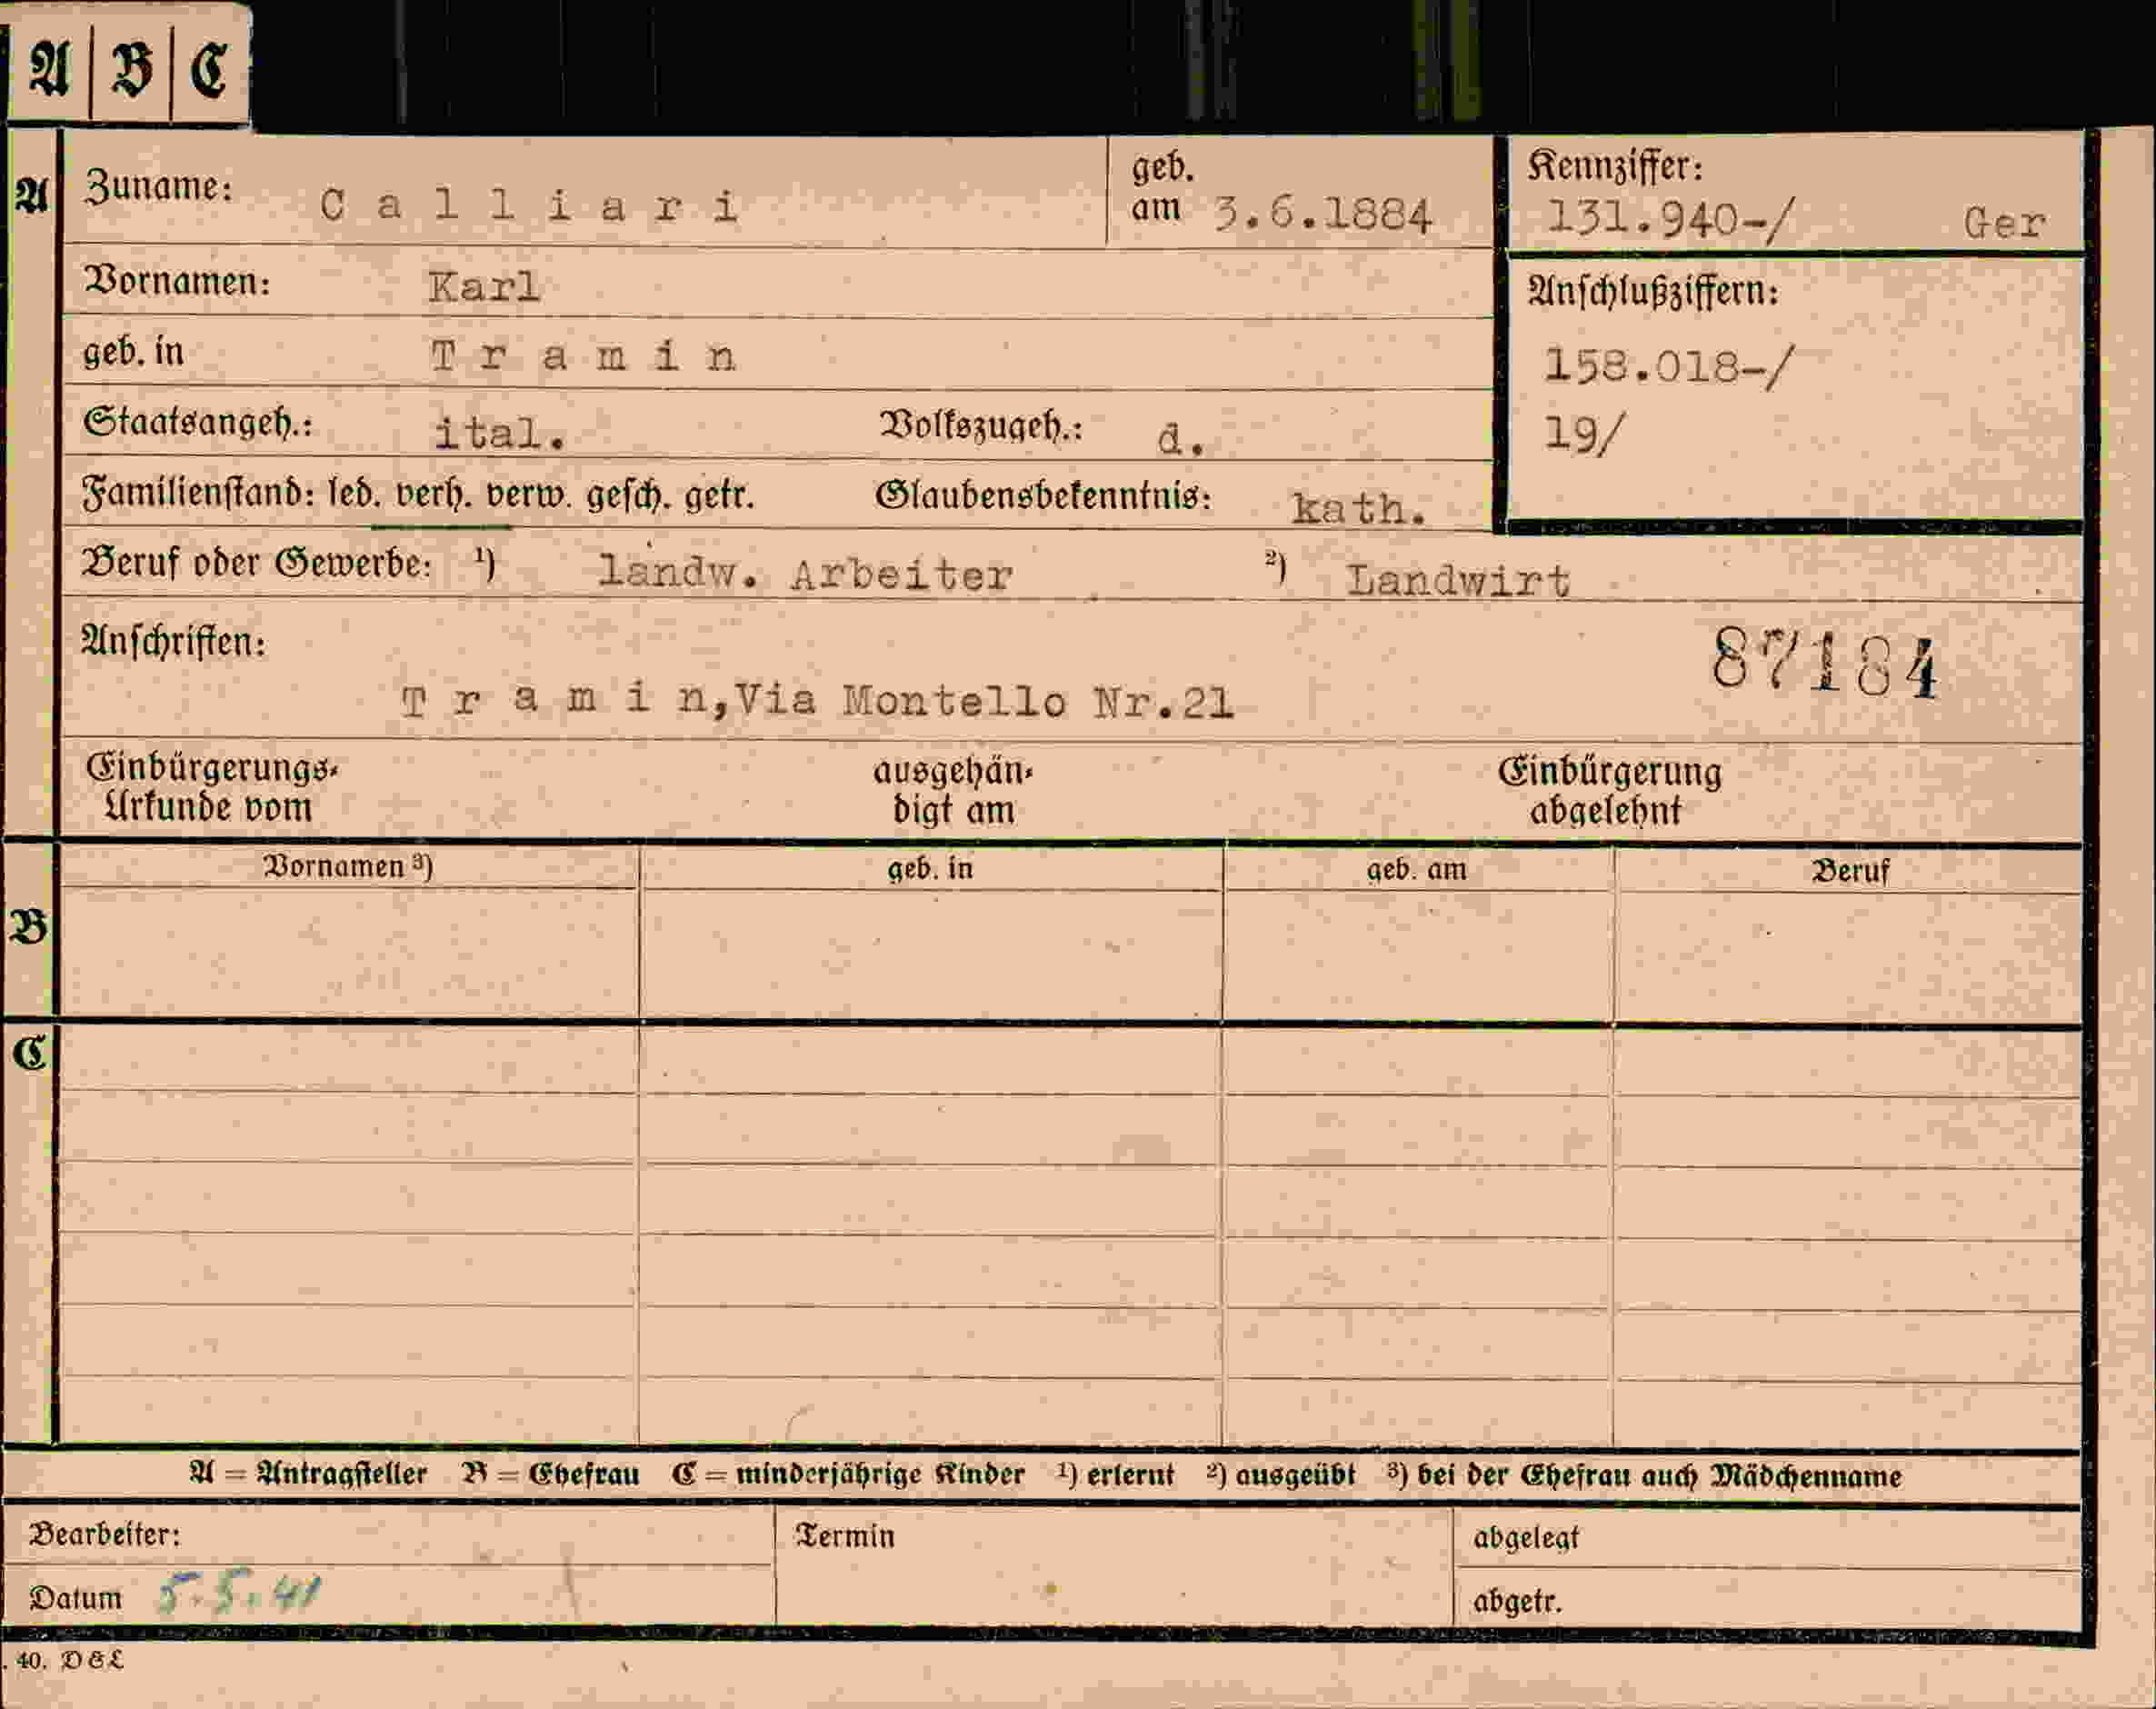 A B C
A Zuname: Calliari geb. am 3.6.1884 Kennziffer: 131.940-/ Ger
Vornamen: Karl Anschlußziffern:
geb. in Tramin 158.018-/
Staatsangeh.: ital. Volkszugeh.: d. 19/
Familienstand: led. verh. verw. gesch. getr. Glaubensbekenntnis: kath.
Beruf oder Gewerbe: 1) landw. Arbeiter 2) Landwirt
Anschriften: 87184
Tramin, Via Montello Nr.21
Einbürgerungs- ausgehän- Einbürgerung
Urkunde vom digt am abgelehnt
Vornamen 3) geb. in geb. am Beruf
B
C
A = Antragsteller B = Ehefrau C = minderjährige Kinder 1) erlernt 2) ausgeübt 3) bei der Ehefrau auch Mädchenname
Bearbeiter: Termin abgelegt
Datum 5.5.41 abgetr.
. 40. D&L